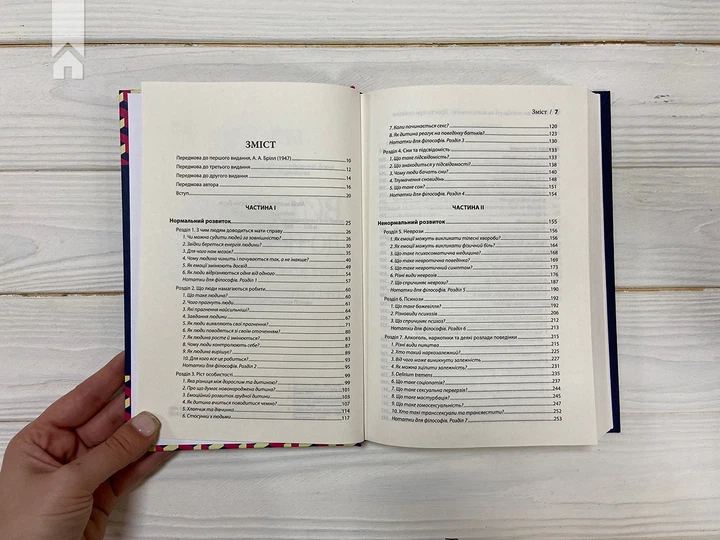 ЗМІСТ
Передмова до першого видання. А. А. Брілл (1947) 10
Передмова до третього видання 12
Передмова до другого видання 14
Передмова автора 16
Вступ 20
ЧАСТИНА І
Нормальний розвиток 25
Розділ 1. З чим людям доводиться мати справу 26
1. Чи можна судити людей за зовнішністю? 26
2. Звідки береться енергія людини? 35
3. Для чого нам мозок? 36
4. Чому людина чинить і почувається так, а не інакше? 40
5. Як емоції змінюють досвід 49
6. Як люди відрізняються одне від одного 54
Нотатки для філософів. Розділ 1 57
Розділ 2. Що люди намагаються робити 60
1. Що таке людина? 60
2. Чого прагнуть люди? 61
3. Які прагнення найсильніші? 64
4. Завдання людини 67
5. Як люди виявляють свої прагнення? 71
6. Як люди поводяться зі своїм оточенням? 80
7. Як людина росте й змінюється? 83
8. Чому люди контролюють себе? 83
9. Як людина вирішує? 87
10. Для кого все це робиться? 93
Нотатки для філософів. Розділ 2 95
Розділ 3. Ріст особистості 99
1. Яка різниця між дорослим та дитиною? 99
2. Про що думає новонароджена дитина? 101
3. Емоційний розвиток грудної дитини 103
4. Як дитина вчиться поводитися чемно? 107
5. Хлопчик та дівчинка 114
6. Стосунки з людьми 117
Зміст / 7
7. Коли починається секс? 120
8. Як дитина реагує на поведінку батьків? 123
Нотатки для філософів. Розділ 3 130
Розділ 4. Сни та підсвідомість 135
1. Що таке підсвідомість? 135
2. Що знаходиться у підсвідомості? 138
3. Чому люди бачать сни? 141
4. Тлумачення сновидінь 144
5. Що таке сон? 151
Нотатки для філософів. Розділ 4 154
ЧАСТИНА ІІ
Ненормальний розвиток 155
Розділ 5. Неврози 156
1. Як емоції можуть викликати тілесні хвороби?
2. Як емоції можуть викликати фізичний біль?
3. Що таке психосоматична медицина?
4. Що таке невротична поведінка?
5. Що таке невротичний симптом?
6. Різні види неврозів
7. Що спричиняє неврози? 187
Нотатки для філософів. Розділ 5 190
Розділ 6. Психози 192
1. Що таке божевілля? 192
2. Різновиди психозів 206
3. Що спричиняє психоз? 212
Нотатки для філософів. Розділ 6 213
Розділ 7. Алкоголь, наркотики та деякі розлади поведінки 215
1. Різні види пияцтва 215
2. Хто такий наркозалежний?
3. Від чого може виникнути залежність?
4. Як можна зцілити залежність?
5. Delirium tremens
6. Що таке соціопатія?
7. Що таке сексуальна перверзія? 244
8. Що таке мастурбація? 245
9. Що таке гомосексуальність? 247
10. Хто такі транссексуали та трансвестити? 252
Нотатки для філософів. Розділ 7 253